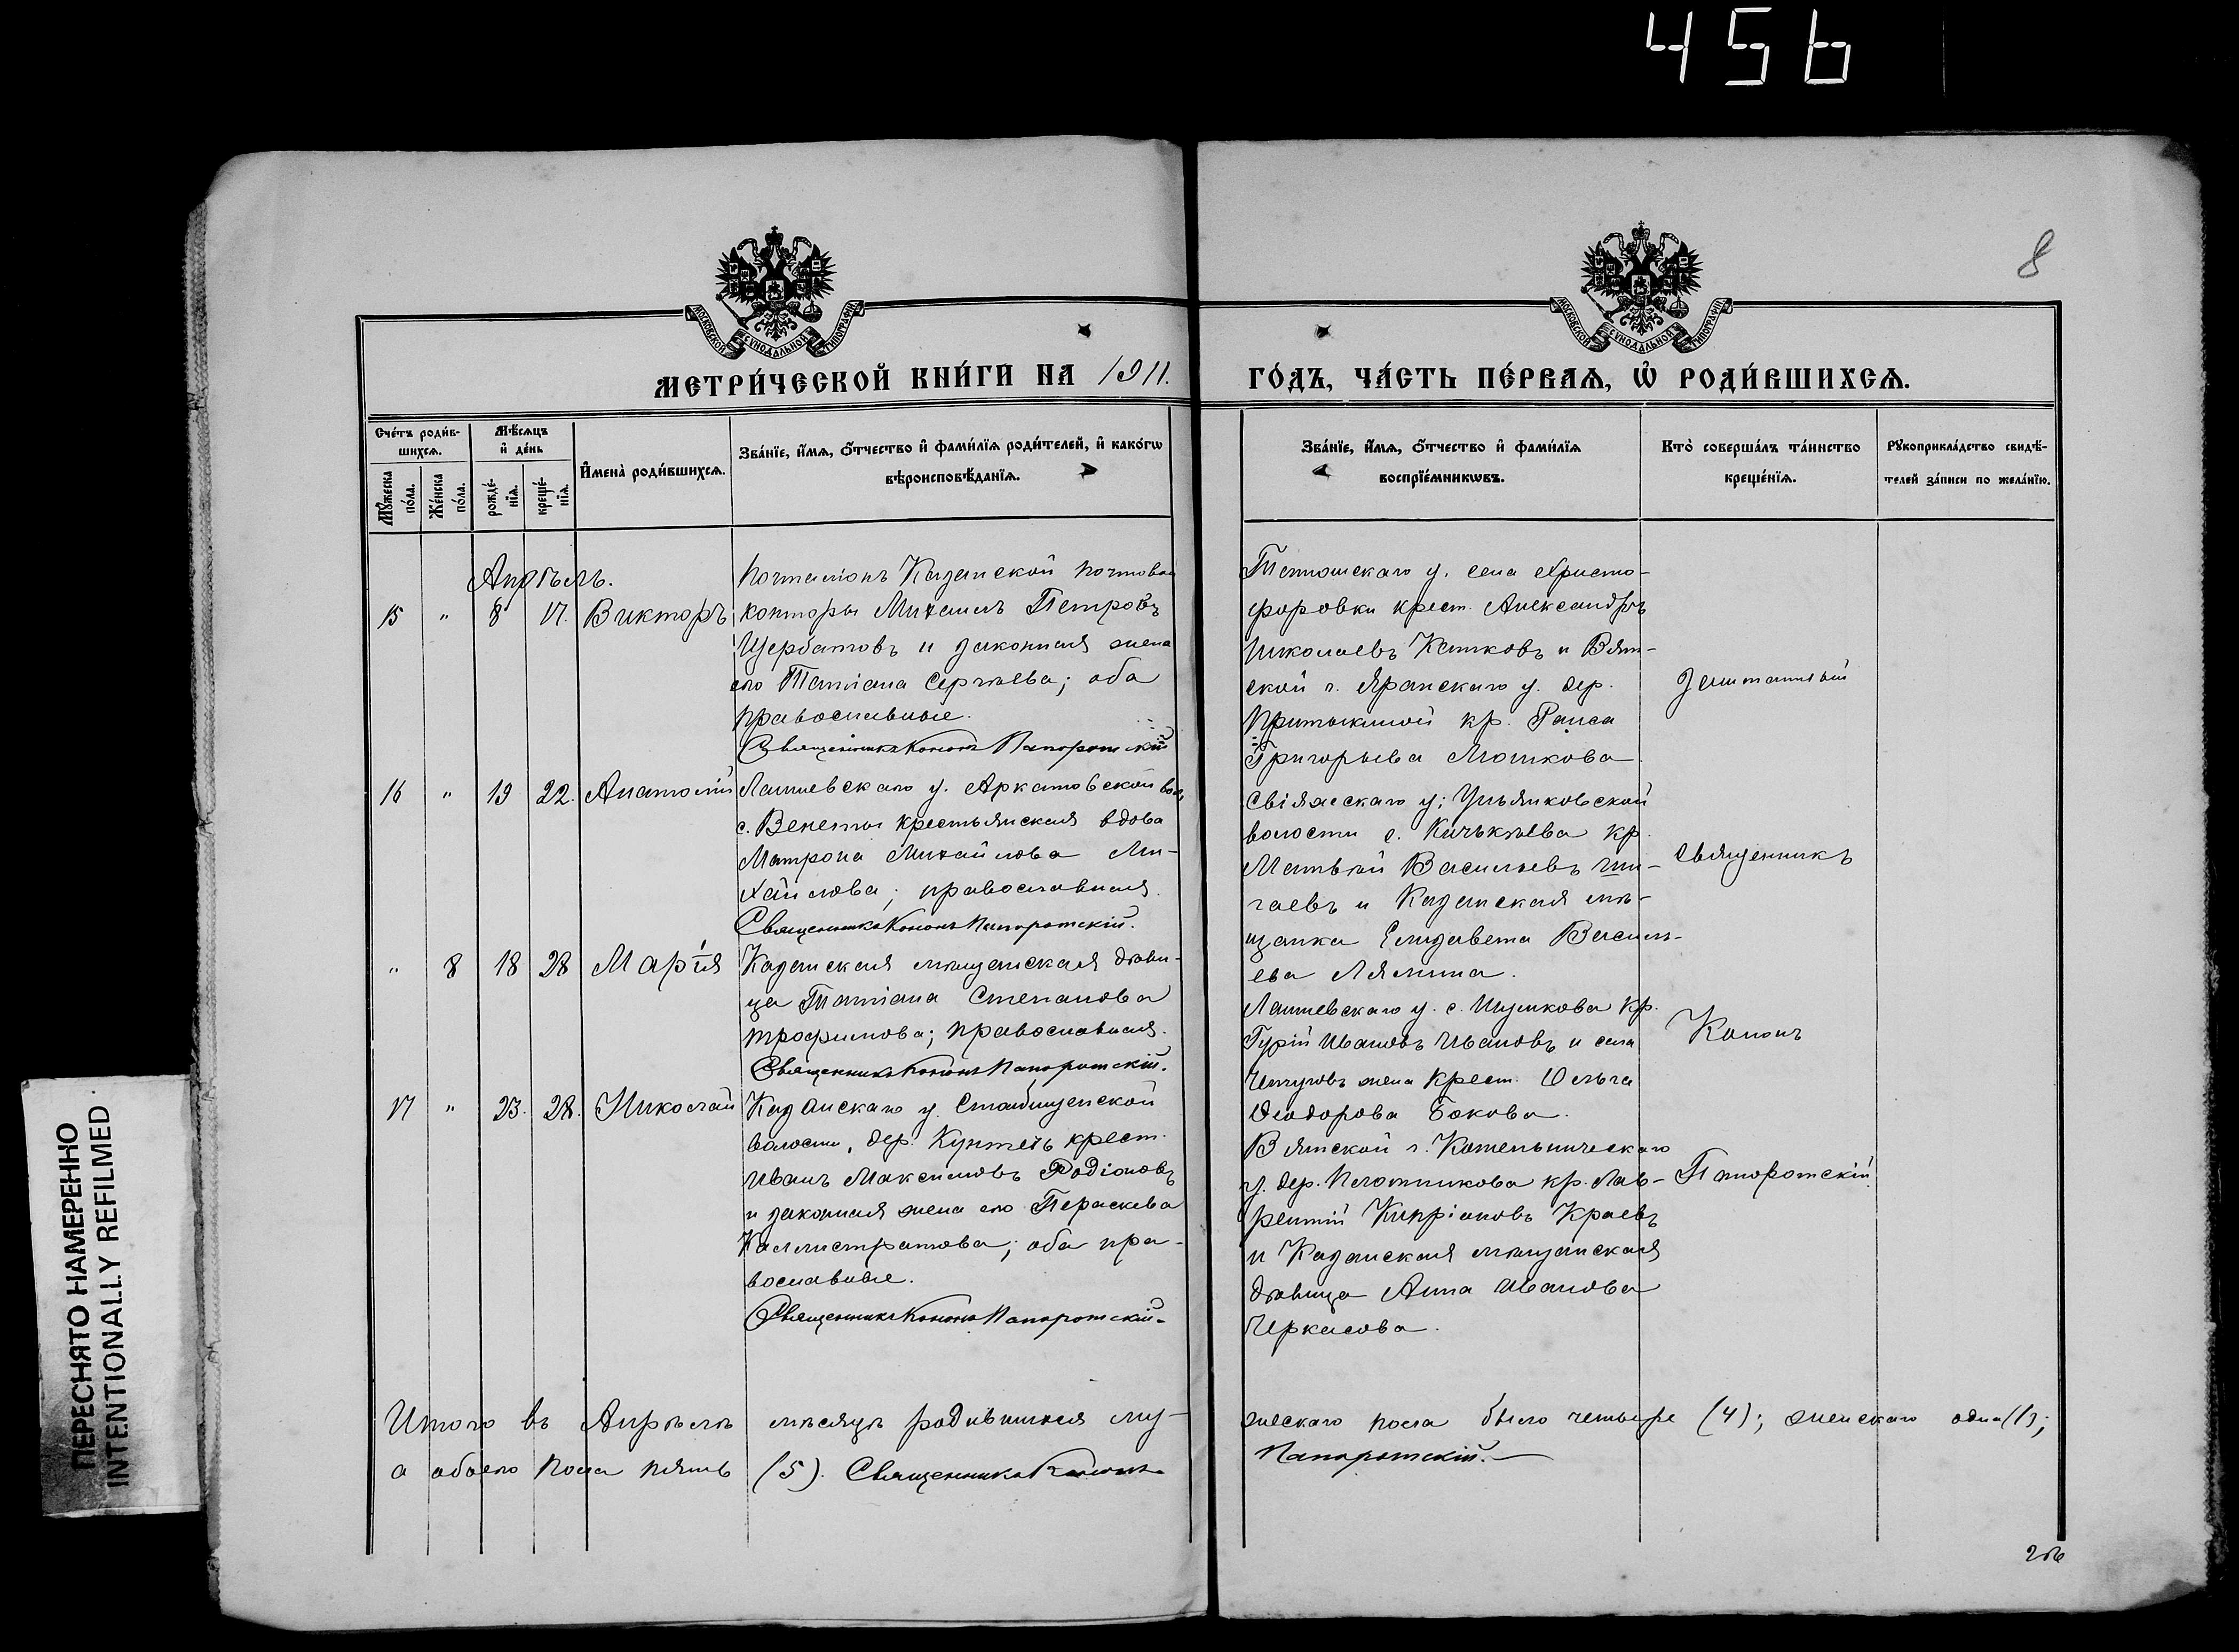 456
8
МОСКОВСКОЙ СѴНОДАЛЬНОЙ ТИПОГРАФІИ
МОСКОВСКОЙ СѴНОДАЛЬНОЙ ТИПОГРАФІИ
МЕТРИ́ЧЕСКОЙ КНИ́ГИ НА 1911. ГО́ДЪ, ЧА́СТЬ ПЕ́РВАѦ, Ѽ РОДИ́ВШИХСѦ.
Сче́тъ роди́в-
шихсѧ.
Мꙋжеска по́ла.
Же́нска по́ла.
Мѣ́сѧцъ
и҆ де́нь
рожде́-
нїѧ.
креще́-
нїѧ.
И҆мена̀ роди́вшихсѧ.
Зва́нїе, и҆́мѧ, ѻ҆́тчество и҆ фами́лїѧ роди́телей, и҆ како́гѡ
вѣроисповѣ́данїѧ.
Зва́нїе, и҆́мѧ, ѻ҆́тчество и҆ фами́лїѧ
воспрїе́мникѡвъ.
Кто̀ соверша́лъ та́инство
креще́нїѧ.
Рꙋкоприкла́дство свидѣ́-
телей за́писи по жела́нїю.
Апрѣль.
15 " 8 17. Викторъ
Почталіонъ Казанской почтовой
конторы Михаилъ Петровъ
Щербатовъ и законная жена
его Татіана Сергѣева; оба
православные.
Священникъ Кононъ Папоротскій
Тетюшскаго у. села Христо-
форовки крест. Александръ
Николаевъ Катковъ и Вят-
ской г. Яранскаго у. дер.
Притыкиной кр. Раиса
Григорьева Мошкова
16 " 19 22. Анатолій
Лаишевскаго у. Аркатовской вол.
с. Венеты крестьянская вдова
Матрона Михайлова Ми-
хайлова; православная.
Священникъ Кононъ Папоротскій.
Свіяжскаго у; Ульянковской
волости с. Кичькѣева кр.
Матвѣй Васильевъ Чи-
гаевъ и Казанская мѣ-
щанка Елизавета Василь-
ева Лямина.
" 8 18 28 Марія
Казанская мѣщанская дѣви-
ца Татіана Степанова
Трофимова; православная.
Священникъ Кононъ Папоротскій.
Лаишевскаго у. с. Шумкова кр.
Гурій Ивановъ Ивановъ и села
жена крест. Ольга
Ѳеодорова Бокова.
17 " 23. 28. Николай
Казанскаго у. Столбищенской
волости, дер. крест.
Иванъ Максимовъ Родіоновъ
и законная жена его Параскева
Каллистратова; оба пра-
вославные.
Священникъ Кононъ Папоротскій.
Вятской г. Котельническаго
у. дер. Плотникова кр. Лав-
рентій Кипріановъ Краевъ
и Казанская мѣщанская
дѣвица Анна Иванова
Черкасова.
Заштатный
Священникъ
Кононъ
Папоротскій.
Итого въ Апрѣлѣ мѣсяцѣ родившихся му-
жескаго пола было четыре (4); женскаго одна (1);
а обоего пола пять (5). Священникъ Кононъ
Папоротскій.
ПЕРЕСНЯТО НАМЕРЕННО
INTENTIONALLY REFILMED